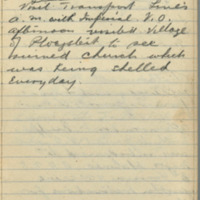 Visit Transport Lines
a.m. with Imperial V.O.
afternoon visited Village
of Ploegsteert to see
ruined Church which
was being shelled
Everyday.